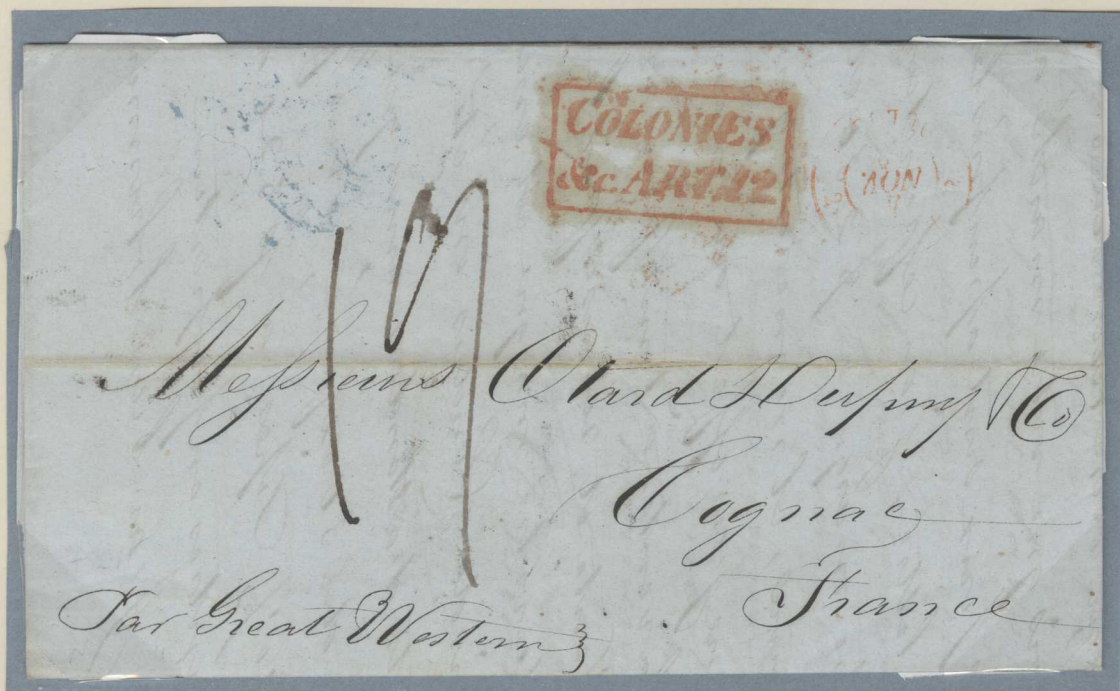 COLONIES
&c. ART. 12
NOV
19
Messieurs Otard Dupuy & Co
Cognac
France
Par Great Western